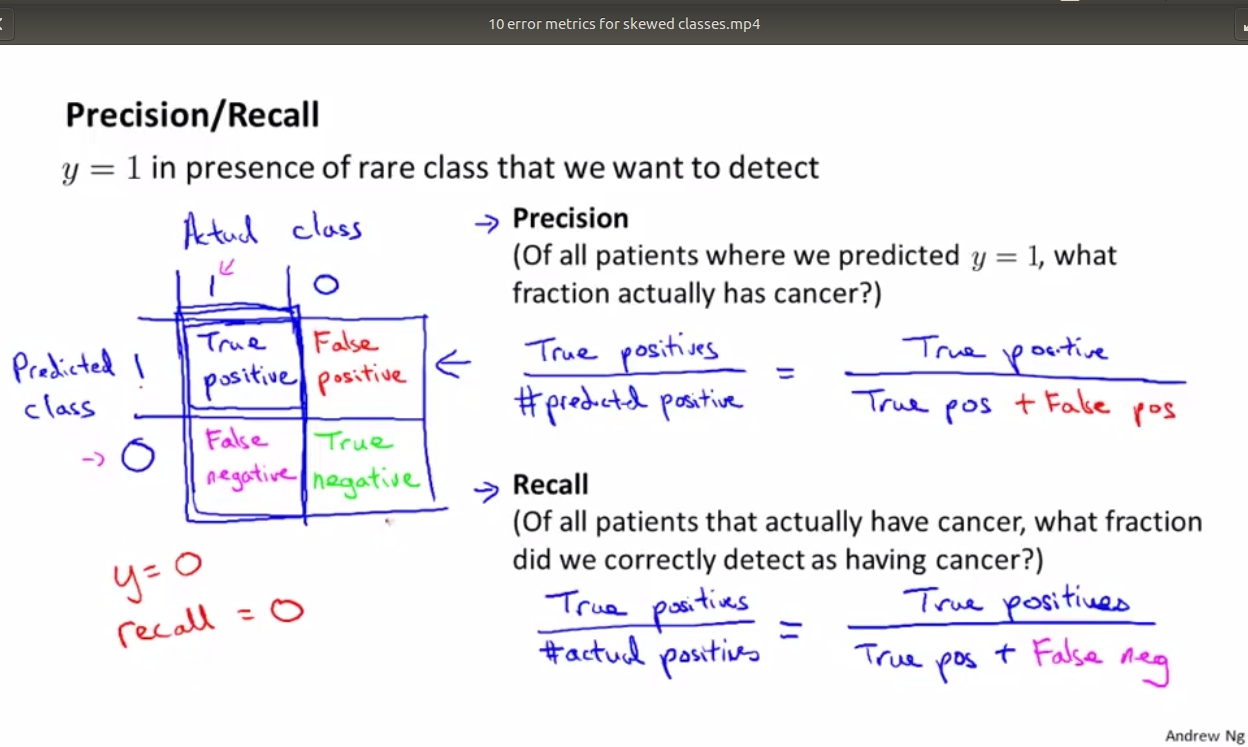 10 error metrics for skewed classes.mp4
Precision/Recall
y = 1 in presence of rare class that we want to detect
Actual class
1 0
Predicted 1
class
0
True
positive
False
positive
False
negative
True
negative
y = 0
recall = 0
→ Precision
(Of all patients where we predicted y = 1, what
fraction actually has cancer?)
True positives
#predicted positive
=
True positive
True pos + False pos
→ Recall
(Of all patients that actually have cancer, what fraction
did we correctly detect as having cancer?)
True positives
#actual positives
=
True positives
True pos + False neg
Andrew Ng